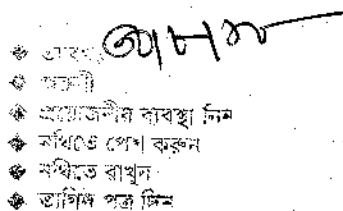 জরুরী
প্রয়োজনীয় ব্যবস্থা নিন
নথিতে পেশ করুন
নথিতে রাখুন
তাগিদ পত্র দিন